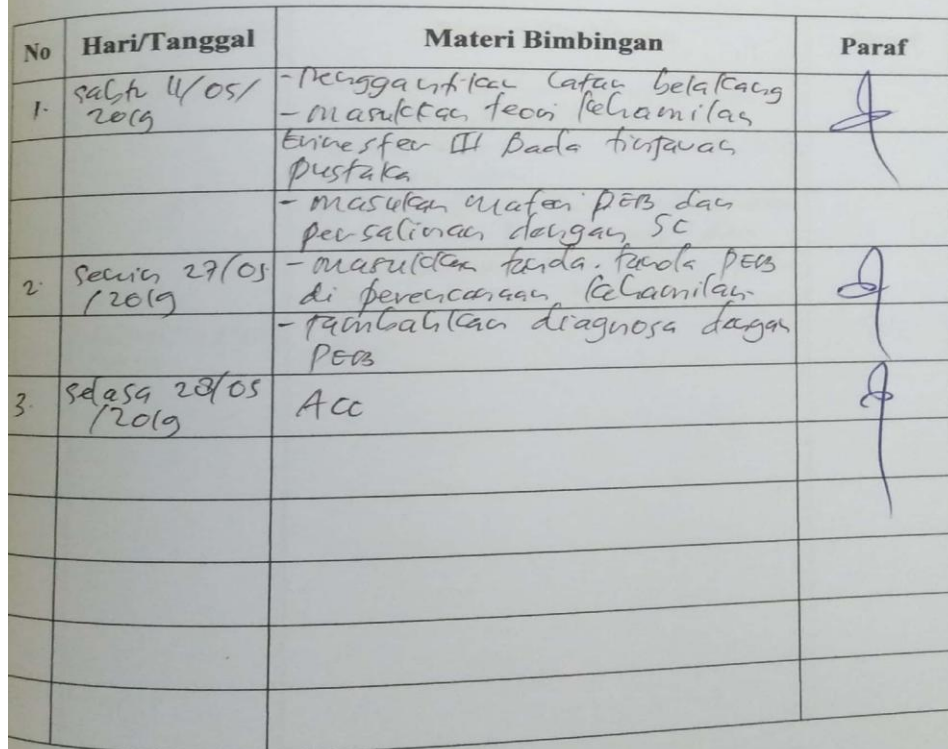 No Hari/Tanggal Materi Bimbingan Paraf
1. Sabtu 11/05/ - Menggantikan Latar belakang
2019 - masukkan teori kehamilan
trimester III Pada tinjauan
pustaka
- masukan materi PEB dan
persalinan dengan SC
2. Senin 27/05 - masukkan tanda-tanda PEB
/2019 di perencanaan kehamilan
- tambahkan diagnosa dengan
PEB
3. Selasa 28/05 ACC
/2019